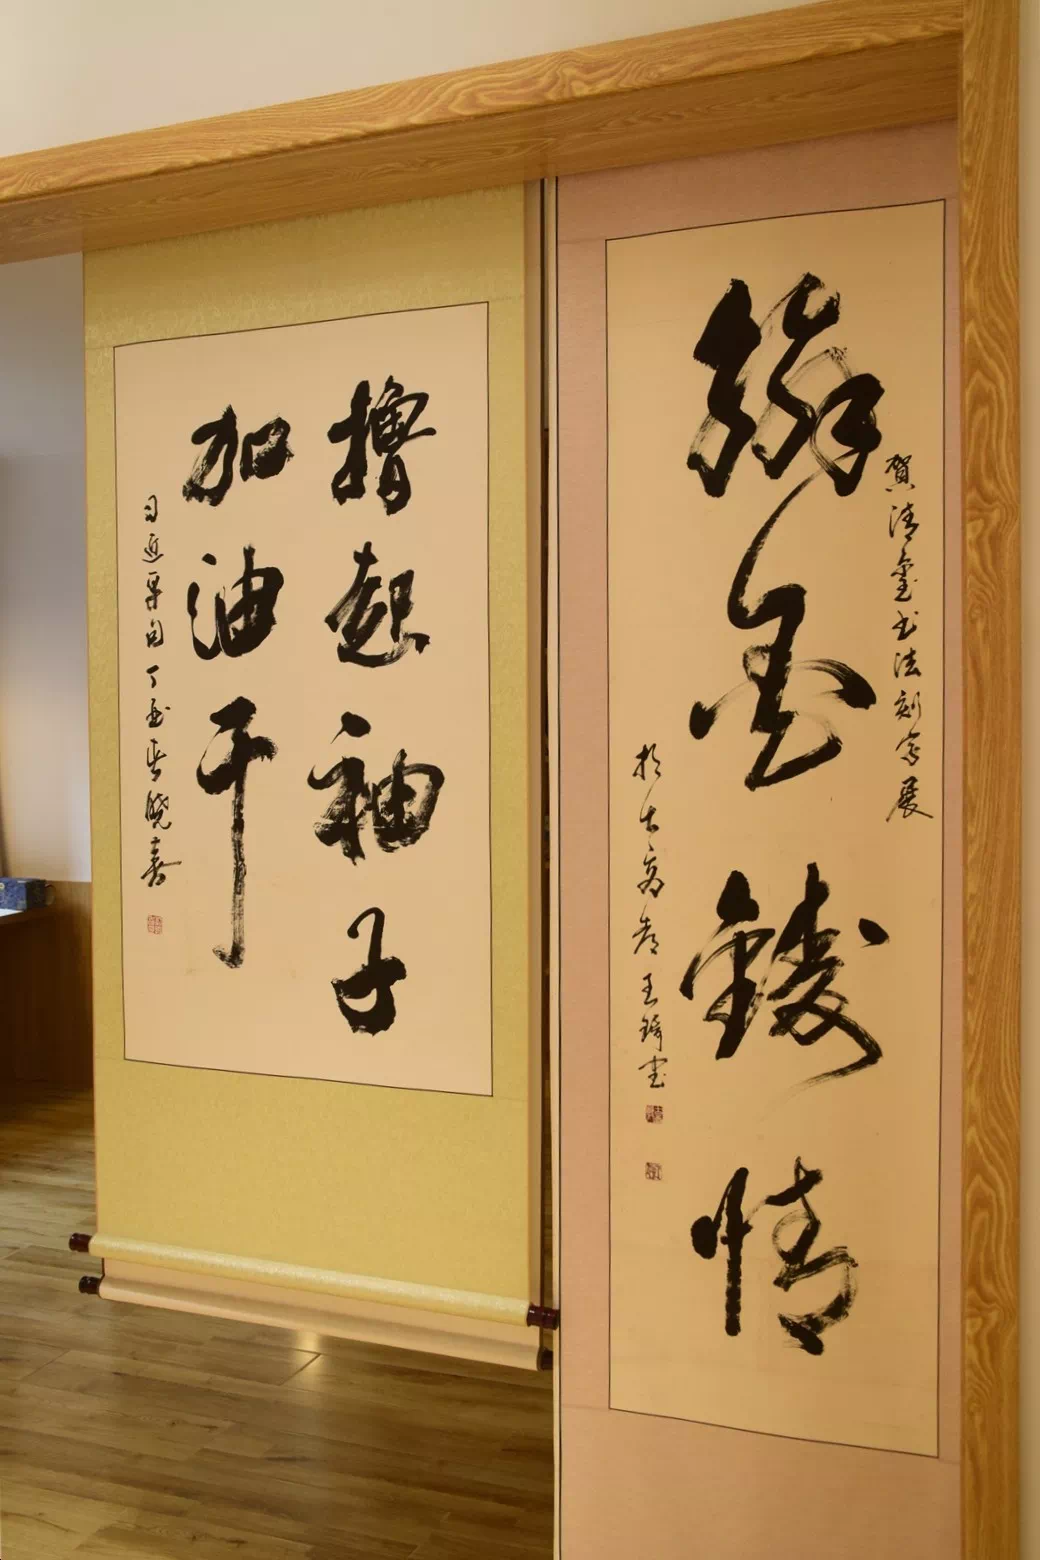 贺清玺书法刻字展
翰墨情
於古高都王錡书
撸起袖子
加油干
习近平句丁酉春晓